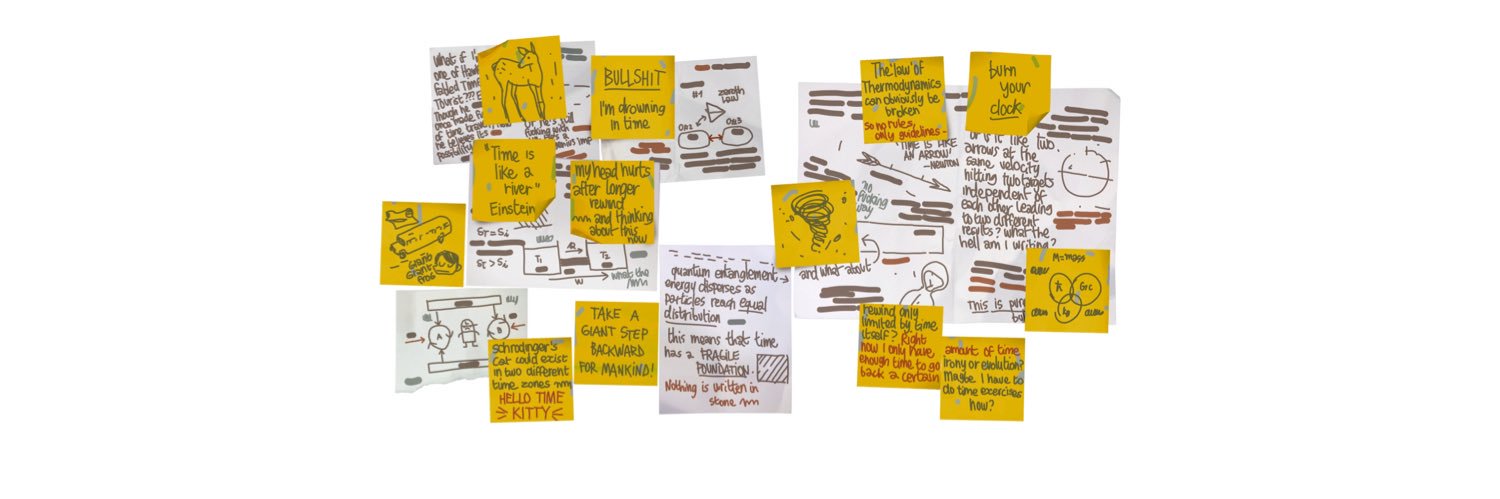 What if I'm
one of Hawk
failed Time
Tourist??? E
Though he
once made fu
of time trave
he believes its
possibility
fucking with
BULLSHIT
I'm drowning
in time
#1
zeroth
law
"Time is
like a
river"
Einstein
my head hurts
after longer
rewind
and thinking
about this
now
ST = Si
St > Si
T1
T2
W
what the
GIANT
GIANT
FROG
A
B
schrodinger's
Cat could exist
in two different
time zones
HELLO TIME
KITTY
TAKE A
GIANT STEP
BACKWARD
FOR MANKIND!
quantum entanglement
energy disperses as
particles reach equal
distribution
this means that time
has a FRAGILE
FOUNDATION.
Nothing is written in
stone
The law of
Thermodynamics
can obviously be
broken
so no rules,
only guidelines-
burn
your
clock
'TIME IS LIKE
AN ARROW'
-NEWTON
'no
fucking
way
and what about
or is it like two
arrows at the
same velocity
hitting two targets
independent of
each other leading
to two different
results? what the
hell am I writing?
This is pur
M=mass
Grc
rewind only
limited by time
itself? Right
now I only have
enough time to go
back a certain
amount of time
irony or evolution?
Maybe I have to
do time exercises
now?